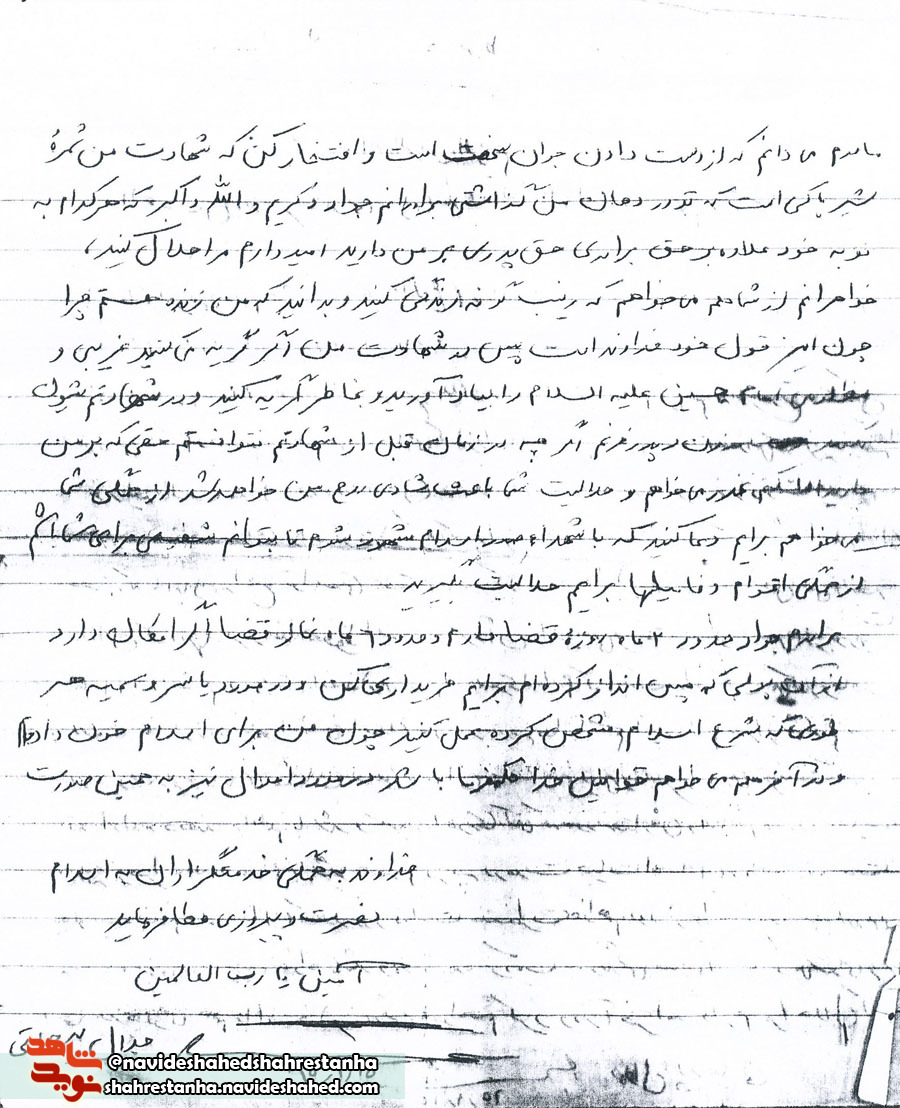 مادرم می دانم که از دست دادن جوان سخت است و افتخار کن که شهادت من ثمرهٔ
شیر پاکی است که تو در دهان من گذاشتی برادرانم جواد و کریم و الله و اکبر که هرکدام به
نوبه خود علاوه بر حق برادری حق پدری بر من دارید امیدوارم مرا حلال کنید،
خواهرانم از شما هم می خواهم که زینب گونه زندگی کنید و بدانید که من زنده هستم چرا
چون این قول خود خداوند است پس در شهادت من اگر گریه می کنید غریبی و
مظلومی امام حسین علیه السلام را بیاد آورید و بخاطرش گریه کنید و در شهادتم شیون
نکنید و پدر عزیزم اگر چه در زمان قبل از شهادتم نتوانستم حقی که بر من
دارید ادا کنم عذر می خواهم و حلالیت شما باعث شادی روح من خواهد شد از همگی شما
می خواهم برایم دعا کنید که با شهداء صدر اسلام محشور شوم تا بتوانم شفیعی برای شما باشم
از همگی اقوام و فامیلها برایم حلالیت بگیرید
برادرم جواد حدود ۲ ماه روزهٔ قضا دارم و حدود ۶ ماه نماز قضا اگر امکان دارد
از آن پولی که پس انداز کرده ام برایم خریداری کن و در مورد یاسر و سمیه هر
طوری که شرع اسلام مشخص کرده عمل کنید چون من برای اسلام خون دادم
و در آخر هم می خواهم قوانین خدا حکمفرما باشد در مورد اموال نیز به همین صورت
خداوند به همگی خدمتگزاران به اسلام
نصرت و پیروزی عطا فرماید
آمین یا رب العالمین
@navideshahedshahrestanha
shahrestanha.navideshahed.com
نوید شاهد